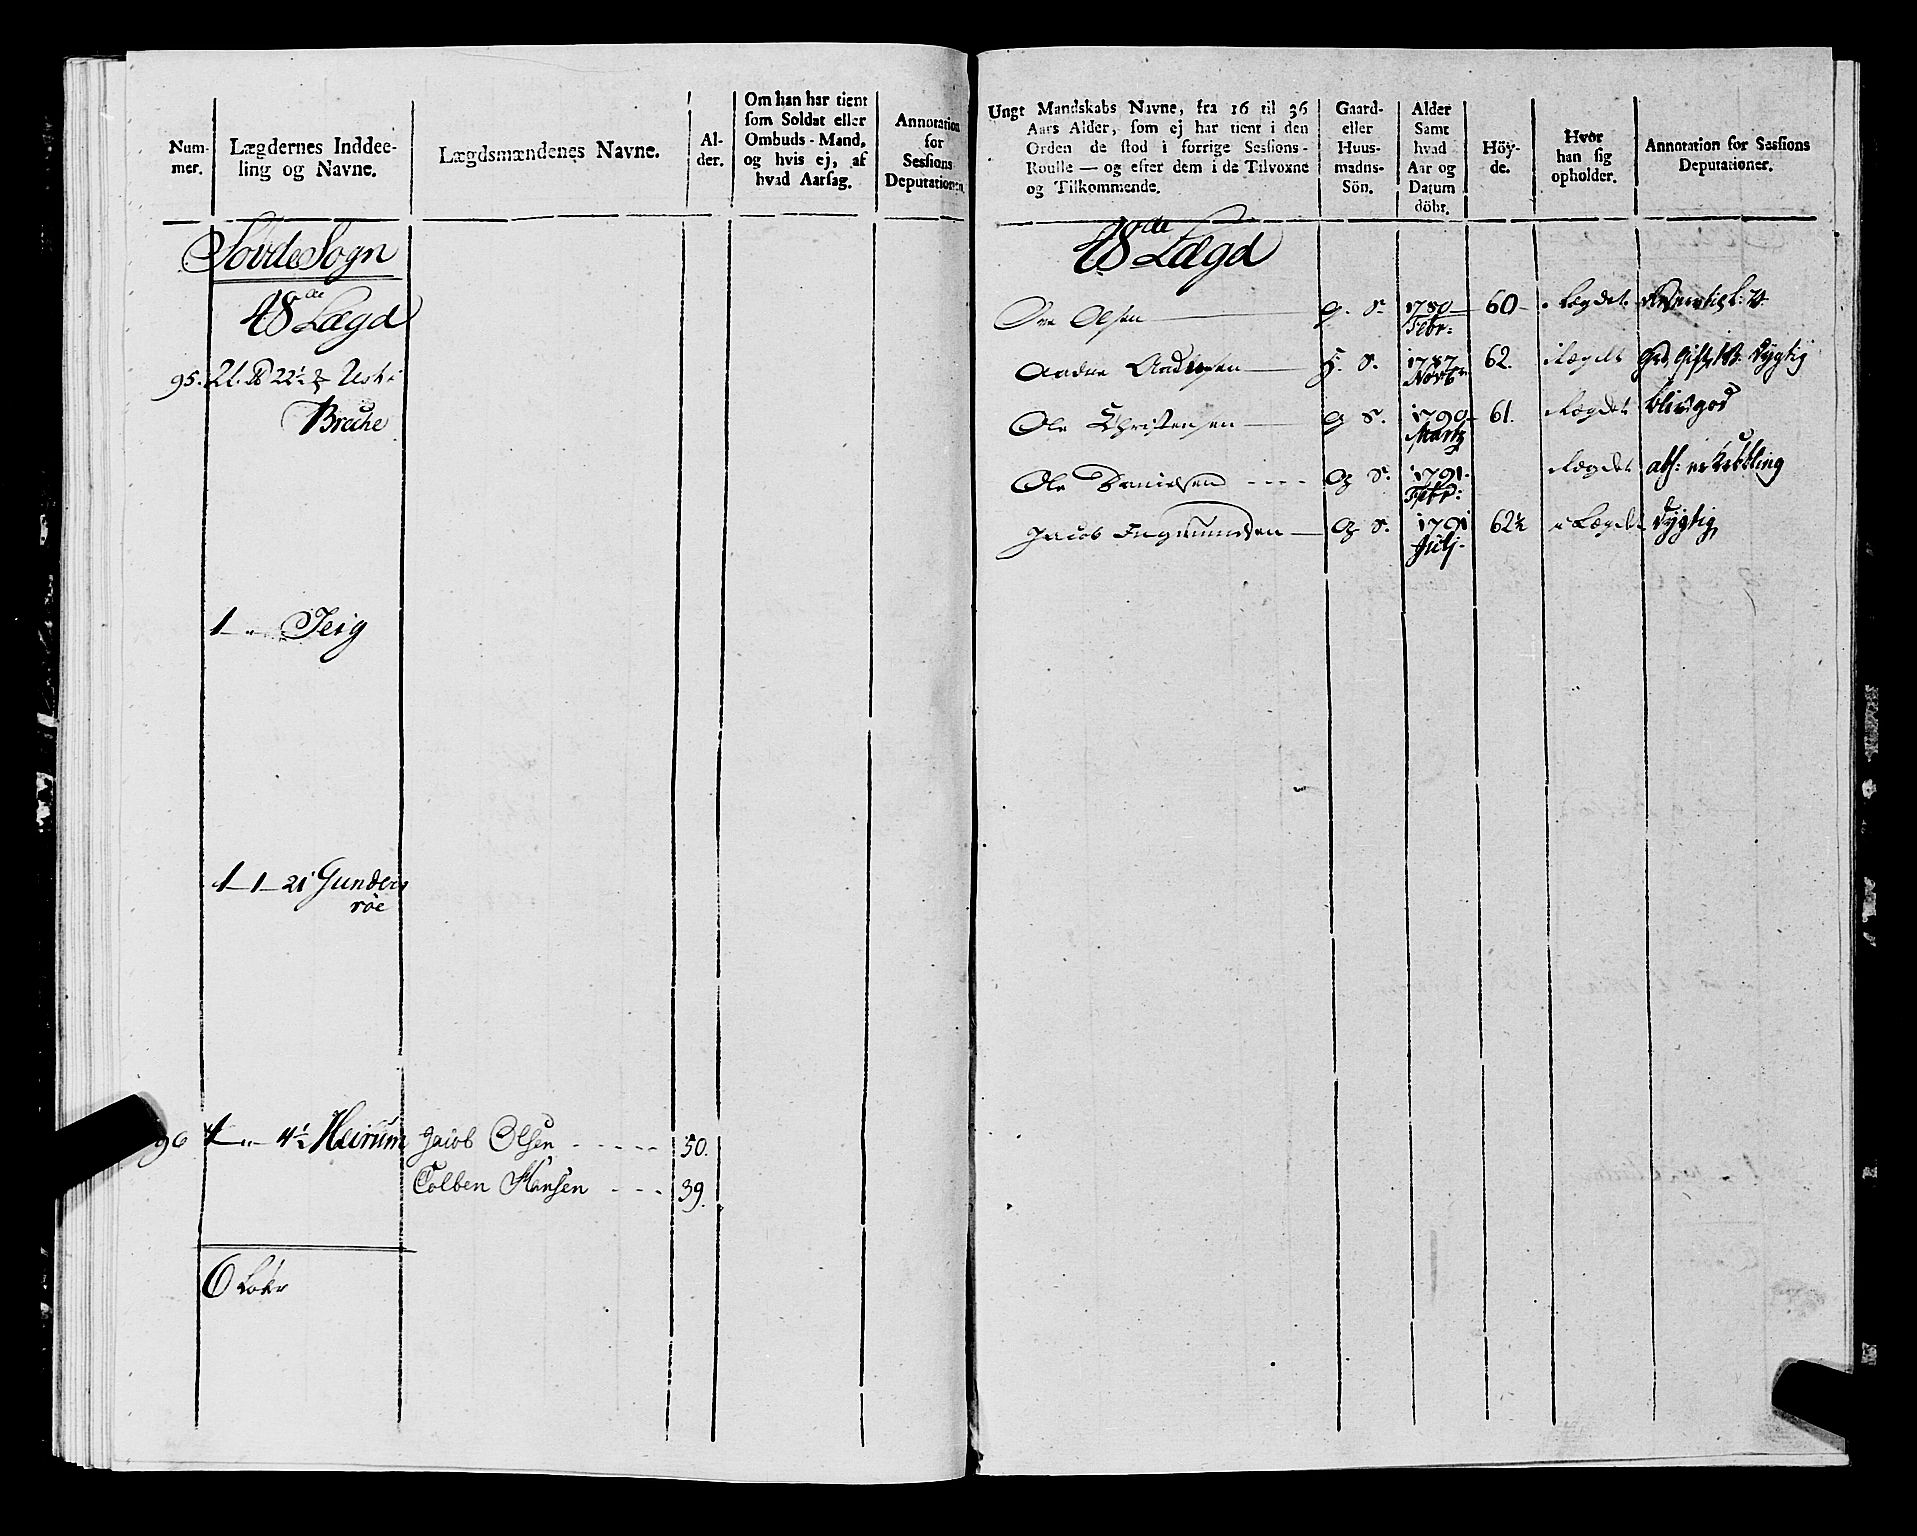 Num-
mer.
Lægdernes Inddee-
ling og Navne.
Lægdsmændenes Navne.
Al-
der.
Om han har tient
som Soldat eller
Ombuds-Mand,
og hvis ej, af
hvad Aarsag.
Annotation
for
Sessions
Deputationen.
Sovde Sogn
48de Lægd
95. 2
Breche
1 " Teig
1 1 21 Gunders
röe
96 1 " 4½ Heirum Jacob Olsen 50.
Tolben Hansen 39.
6
Ungt Mandskabs Navne, fra 16 til 36
Aars Alder, som ej har tient i den
Orden de stod i forrige Sessions-
Roulle — og efter dem i de Tilvoxne
og Tilkommende.
Gaard-
eller
Huus-
madns-
Sön.
Alder
Samt
hvad
Aar og
Datum
döbt.
Höy-
de.
Hvor
han sig
opholder.
Annotation for Sessions
Deputationer.
48de Lægd
Olsen g. S. 1780 Febr: 60 Lægdet
S. 1787 Novbr 62. i Lægdet Gift Dygtig
Ole Christensen g S. 1790 Martz 61. i Lægdet blir god
Ole Danielsen g S. 1791 Febr: i Lægdet
Jacob Ingmundsen g S. 1791 Julj. 62½ i Lægdet Dygtig